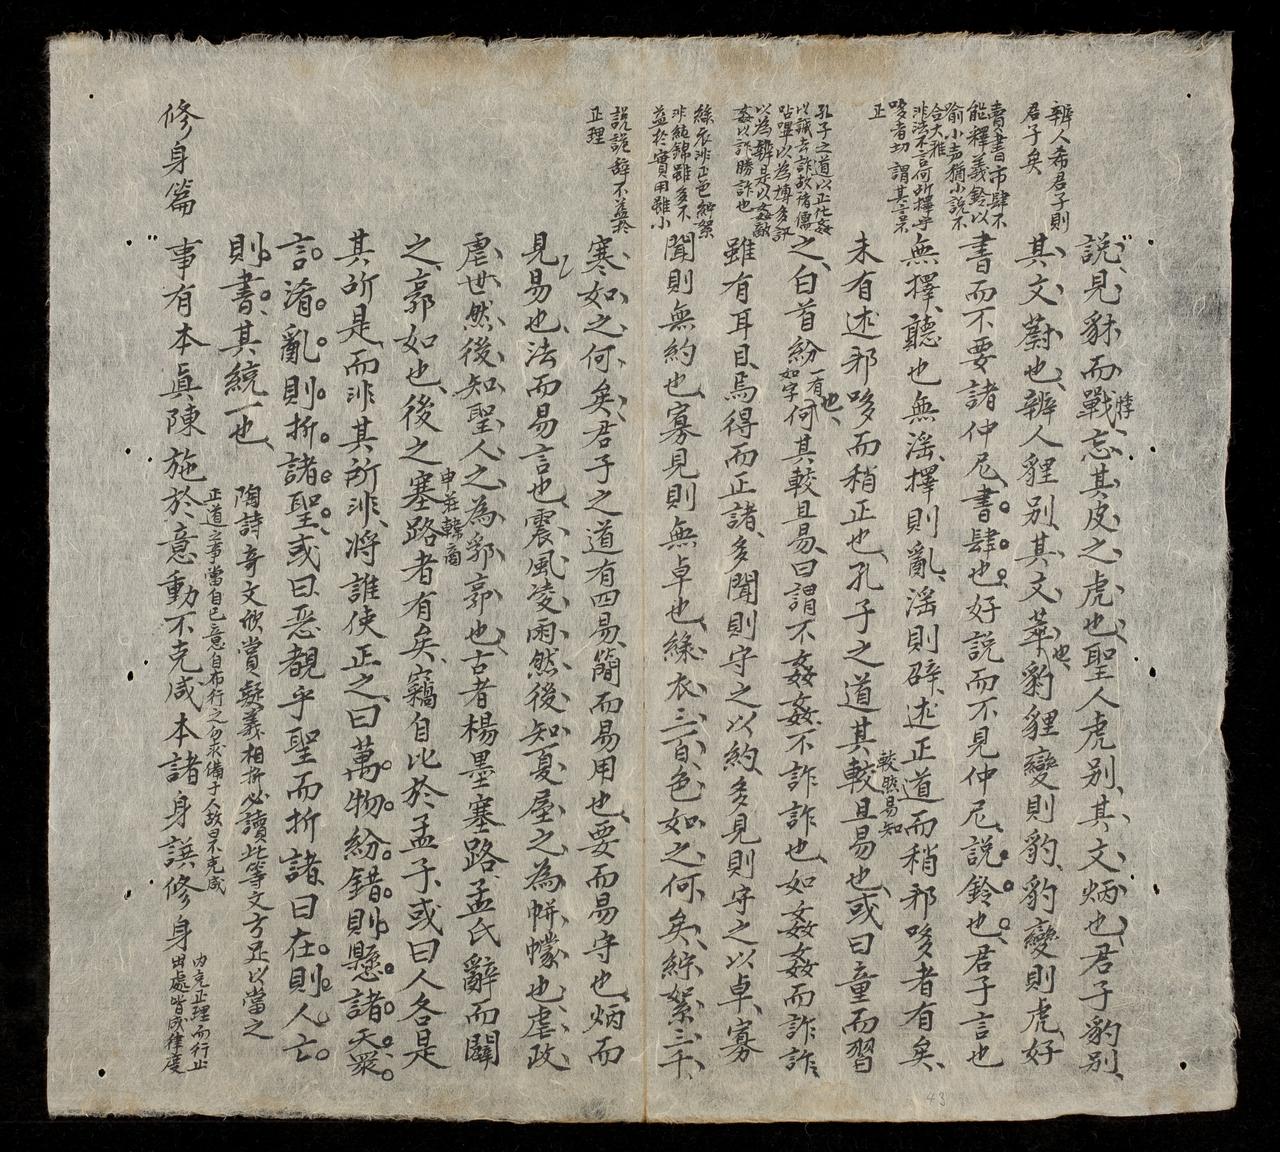 辨人希君子則
君子矣
賣書市肆不
能釋義鈴以
喻小声猶小說不
合大雅
非法不言何所擇乎
哆者切 謂其言不
正
孔子之道以正化姦
以誠去詐故諸儒
呫嗶以為博多訊
以為辨是以姦敵
姦以詐勝詐也
綠衣非正色紵絮
非純錦雖多不
益於實用雖小
說詭辞不益於
正理
說見豺而戰忘其皮之虎也聖人虎别其文炳也君子豹别
悸
其文蔚也辨人貍别其文萃也豹貍變則豹豹變則虎好
書而不要諸仲尼書肆也好說而不見仲尼說鈴也君子言也
無擇聽也無淫擇則亂淫則辟述正道而稍邪哆者有矣
未有述邪哆而稍正也孔子之道其較且易也或曰童而習
較然易知
之白首紛一有也如字何其較且易曰謂不姦姦不詐詐也如姦姦而詐詐
雖有耳目焉得而正諸多聞則守之以約多見則守之以卓寡
聞則無約也寡見則無卓也綠衣三百色如之何矣紵絮三千
寒如之何矣君子之道有四易簡而易用也要而易守也炳而
見易也法而易言也震風凌雨然後知夏屋之為帡幪也虐政
虐世然後知聖人之為郛郭也古者楊墨塞路孟氏辭而闢
之郭如也後之塞路者有矣竊自比於孟子或曰人各是
申莊韓商
其所是而非其所非将誰使正之曰萬物紛錯則懸諸天衆
言淆亂則折諸聖或曰惡覩乎聖而折諸曰在則人亡
則書其統一也
陶詩奇文欣賞疑義相折必讀此等文方足以當之
正道之事當自己意自布行之勿求備于人故曰不克咸
修身篇 事有本眞陳施於意動不克咸本諸身譔修身
内克正理而行止
出處皆成律度
43